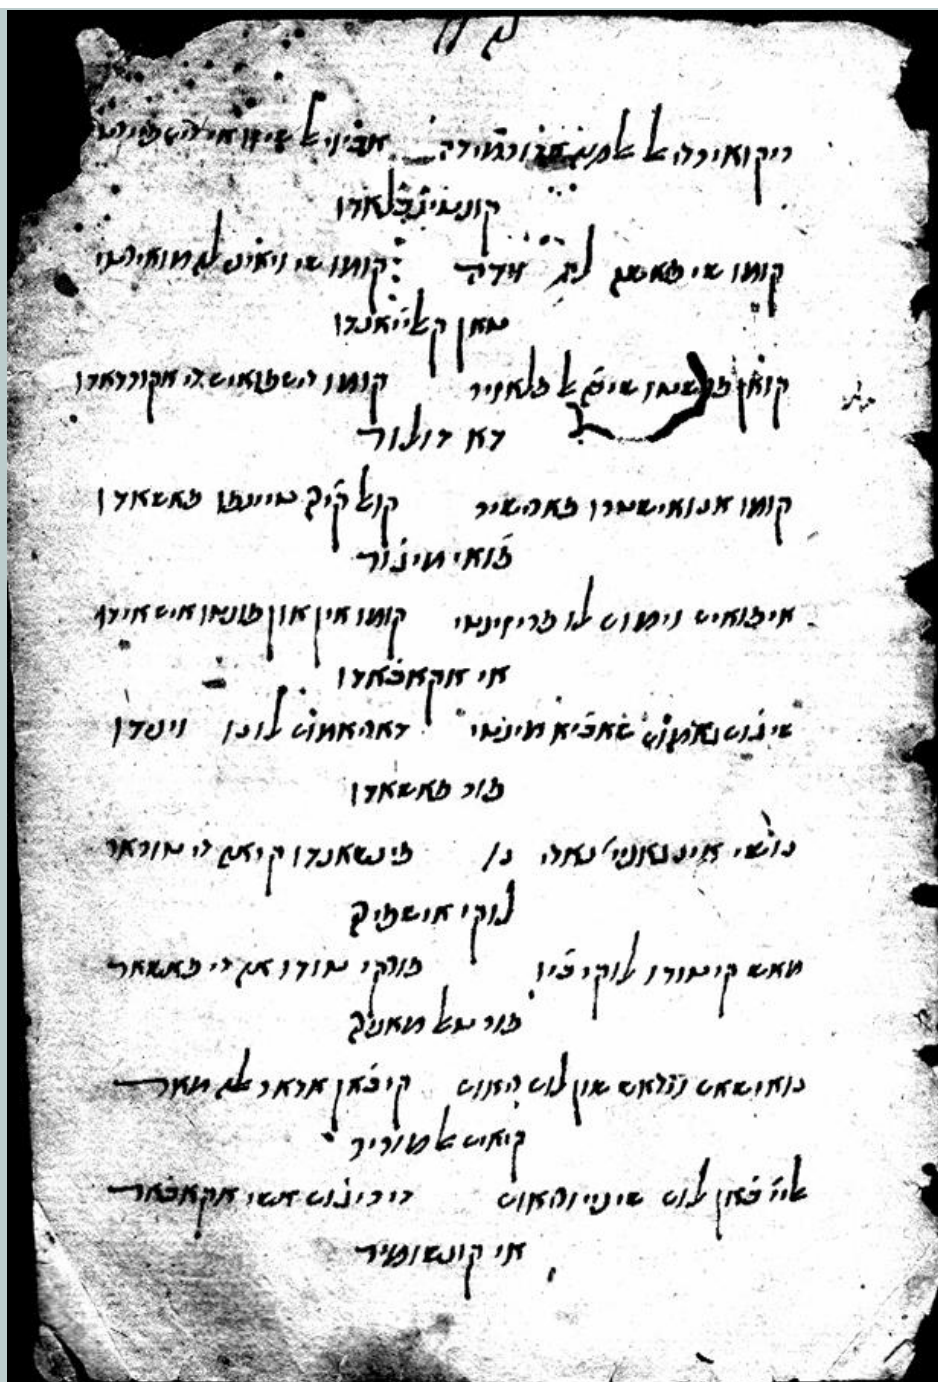 ריקואירדי אל אלמה אדורמידה אביוי אל שישו אי דישפיירטי
קונטינפלאדו
קומו שי פאשה לה וידה : קומו שי ויאיני לה מואירטי
טאן קאלייאנדו
קואן שי בה אל פלאזיר קומו דישפואיש די אקורדאדו
דא דולור
קומו אנואישטרו פארישיר קולקייר טיינפו פאשאדו
פואי מיגור
אי פואיש וימוש לו פריזינטי קומו אין און פונטו איש אידו
אי אקאבאדו
שי גושגאמוש שאביאמינטי דאראמוש לונו וינידו
פור פאשאדו
נושי אינגאנייי נאדי נו פינשאנדו קי אה די טוראר
לוקי אישפירה
מאש קי טורו לוקי ביו פורקי טודו אה די פאשאר
פור טאל מאנירה
נואישטראש וידאש שון לוש ריאוש קי באן אדאר אלה מאר
קי איש אל מוריר
אליי באן לוש שינייוריאוש דיריגוש אשי אקאבאר
אי קונשומיר